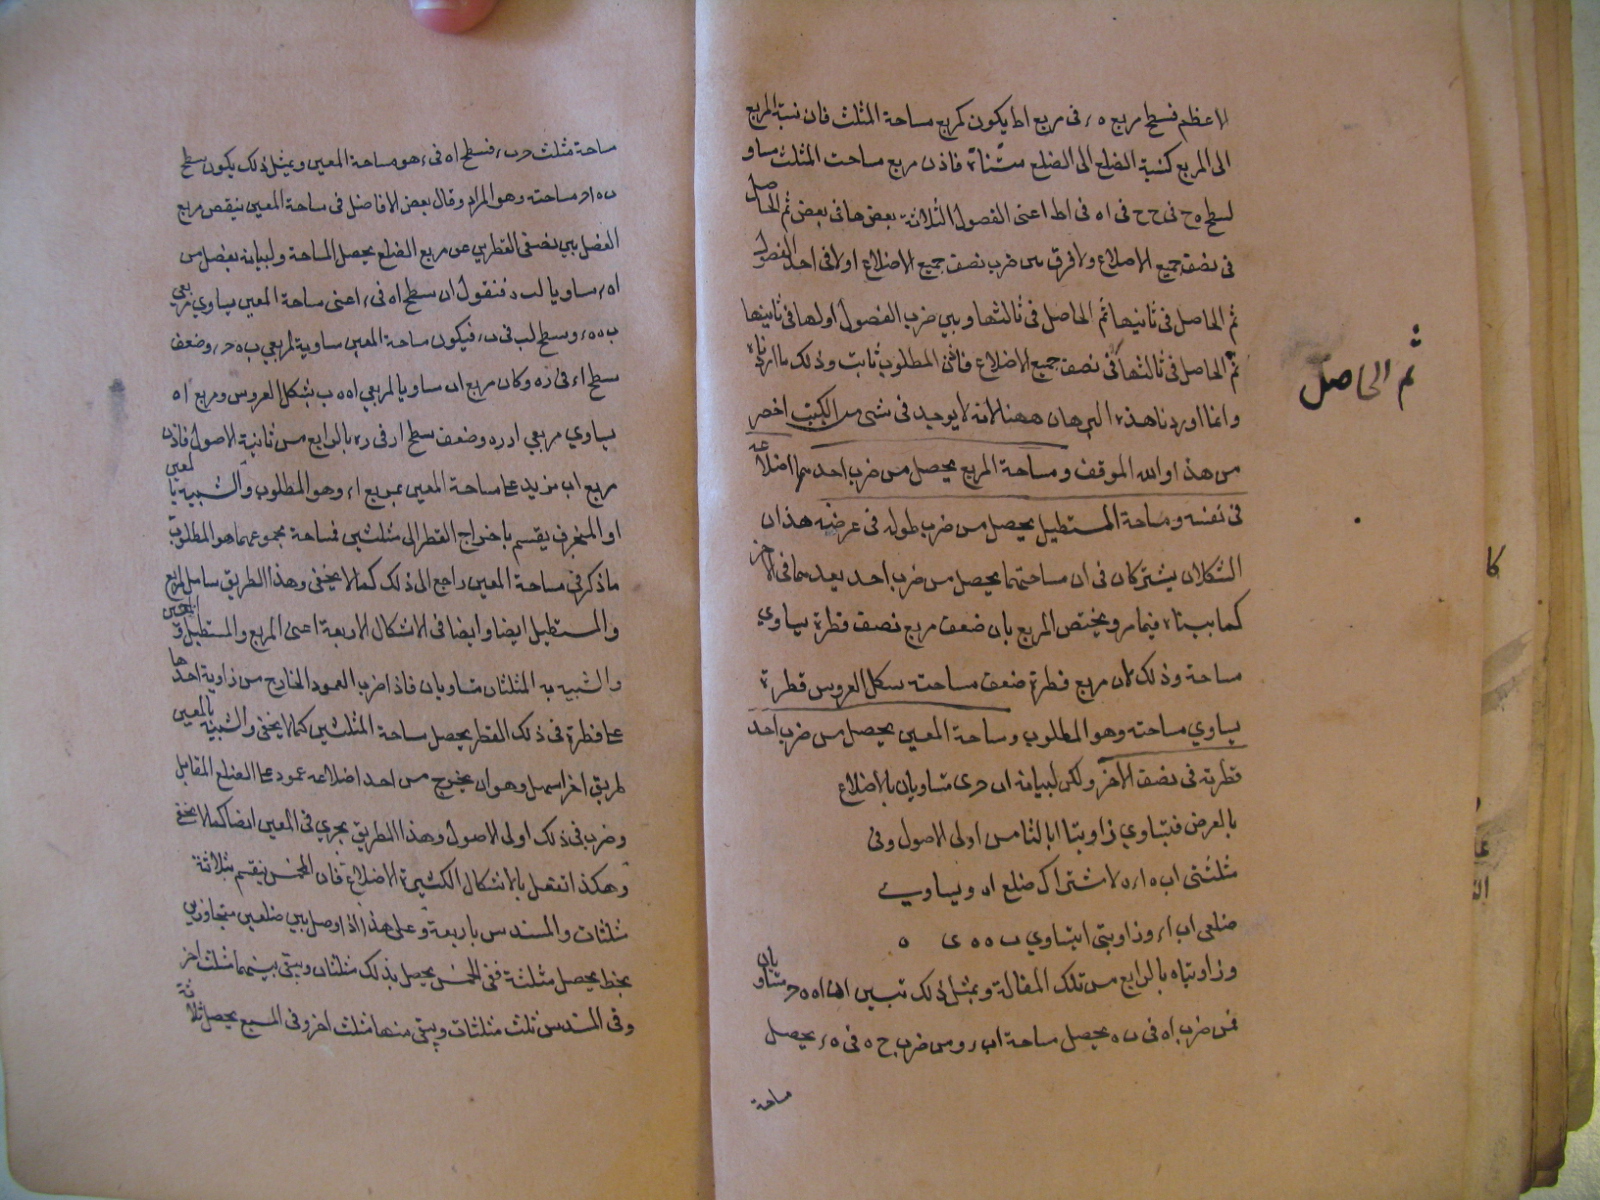 الاعظم فسطح مربع ه ر فى مربع اط يكون كمربع مساحة المثلث فان نسبة المربع
الى المربع كنسبة الضلع الى الضلع مثناة فاذن مربع مساحت المثلث مساو
لسطح ه ح فى ح ح فى ا ه فى اط اعنى الفصول الثلاثة بعضها فى بعض ثم الحاصل
فى نصف جميع الاضلاع ولا فرق بين ضرب نصف جميع الاضلاع اولا فى احد الفضول
ثم الحاصل فى ثانيها ثم الحاصل فى ثالثها وبين ضرب الفصول اولها فى ثانيها
ثم الحاصل فى ثالثها فى نصف جميع الاضلاع فاذن المطلوب ثابت وذلك ما اردناه
وانما اوردنا هذه البرهان ههنا لانه لا يوجد فى شى من الكتب اخصر
من هذا والله الموفق ومساحة المربع يحصل من ضرب احد اضلاعه
فى نفسه ومساحة المستطيل يحصل من ضرب طوله فى عرضه هذان
الشكلان يشتركان فى ان مساحتهما يحصل من ضرب احد بعديهما فى الآخر
كما بيناه فيما مر ويختص المربع بان ضعف مربع نصف قطره يساوي
مساحة وذلك لان مربع قطره ضعف مساحته بشكل العروس قطره
يساوي مساحته وهو المطلوب ومساحة المعين يحصل من ضرب احد
قطريه فى نصف الآخر ولكن لبيانه متساويان بالاضلاع
بالعرض فتساوي زاويتا ا بالثامن اولى الاصول وفى
مثلثى اب ه ا ر ه لاشتراك ضلع ا ه ويساوي
ضلعى اب ا ر وزاويتى ا يتساوي ب ه ه ى ه
وزاويتاه بالرابع من تلك المقالة وبمثل ذلك تبين متساويان
فمن ضرب ا ه فى ب ه يحصل مساحة اب ر ومن ضرب ح ه فى ه ر يحصل
مساحة
ثم الحاصل
كا
مساحة مثلث ح ب ر فسطح ا ه فى ر هو مساحة المعين وبمثل ذلك يكون سطح
مساحته وهو المراد وقال بعض الافاضل فى مساحة المعين ينقص مربع
الفضل بين نصفى القطرين من مربع الضلع يحصل المساحة ولبيانه يفصل من
ا ه ر مساويا لب د فنقول ان سطح ا ه فى ر اعنى مساحة المعين يساوي مربعي
فيكون مساحة المعين مساوية لمربعي ب ه ح ر وضعف
سطح ا ر فى ر ه وكان مربع اب مساويا لمربعي ا ه ه ب بشكل العروس ومربع ا ه
يساوي مربعي ا ر ر ه وضعف سطح ا ر فى ر ه بالرابع من ثانية الاصول فاذن
مربع اب يزيد على مساحة المعين بمربع ا ر وهو المطلوب والشبيه بالمعين
او المنحرف يقسم باخراج القطر الى مثلثين فمساحة مجموعهما هو المطلوب
ما ذكر فى مساحة المعين راجع الى ذلك كما لا يخفى وهذا الطريق شامل للمربع
والمستطيل ايضا وايضا فى الاشكال الاربعة اعنى المربع والمستطيل والمعين
والشبيه به المثلثان متساويان فاذا ضرب العمود الخارج من زاوية احدها
على قطره فى ذلك القطر يحصل مساحة المثلثين كما لا يخفى والشبيه بالمعين
طريق اخر اسهل وهو ان يخرج من احد اضلاعه عمود على الضلع المقابل
وضرب فى ذلك اولى الاصول وهذا الطريق يجري فى المعين ايضا كما لا يخفى
وهكذا تفعل بالاشكال الكثيرة الاضلاع فان المخمس ينقسم بثلاثة
مثلثات والمسدس باربعة وعلى هذا اذا وصل بين ضلعين متجاورين
بخط يحصل مثلثة ففى المخمس يحصل بذلك مثلثان ويبقى بينهما مثلث اخر
وفى المسدس ثلث مثلثات ويبقى منها مثلث اخر وفى المسبع يحصل ثلاثة